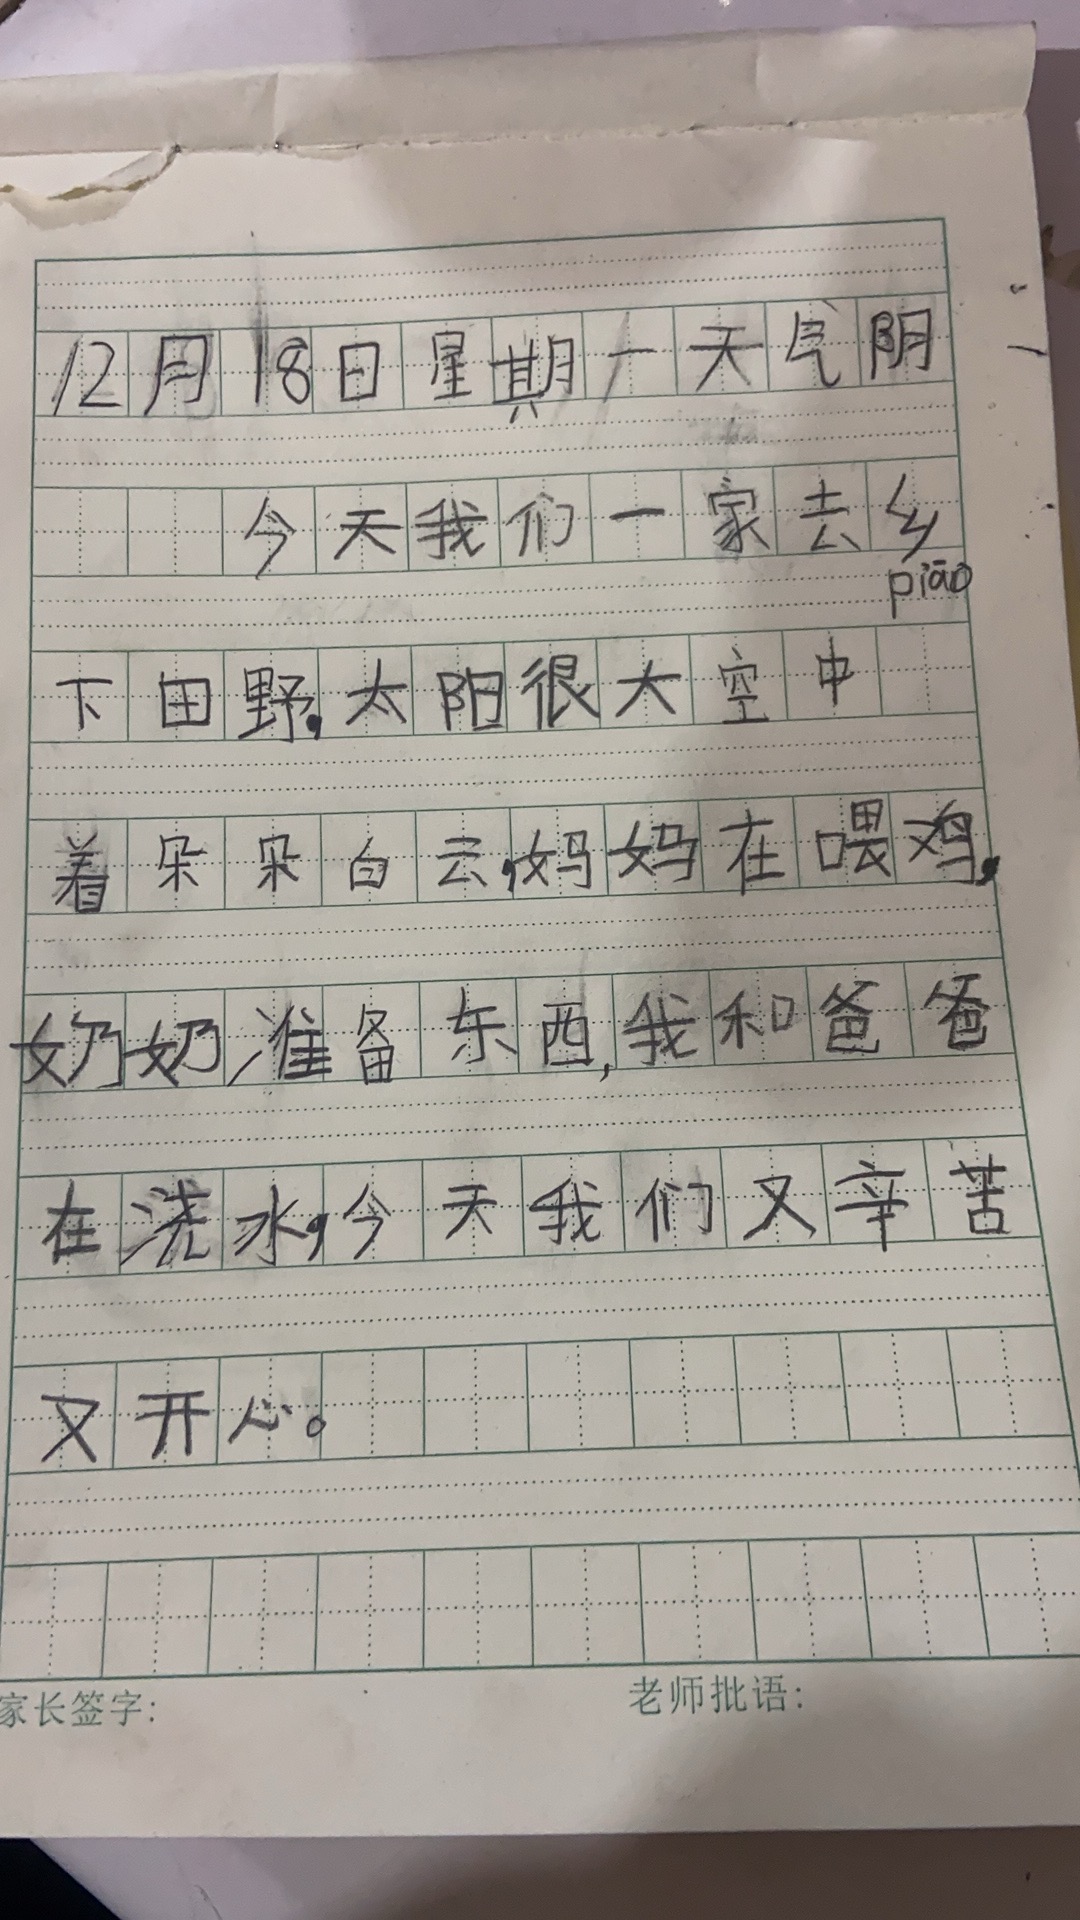 12月18日星期一天气阴
今天我们一家去乡
piāo
下田野,太阳很大空中
着朵朵白云,妈妈在喂鸡,
奶奶准备东西,我和爸爸
在浇水,今天我们又辛苦
又开心。
家长签字:
老师批语: